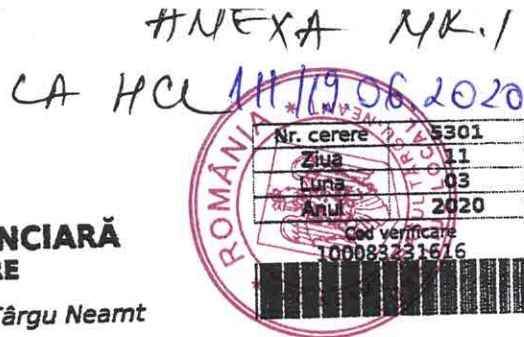 ANEXA NR.1
LA HCL 111/19.06.2020
Nr. cerere 5301
Ziua 11
Luna 03
Anul 2020
Cod verificare
100083231616
NCIARĂ
RE
Târgu Neamt
ROMÂNIA
LOCAL